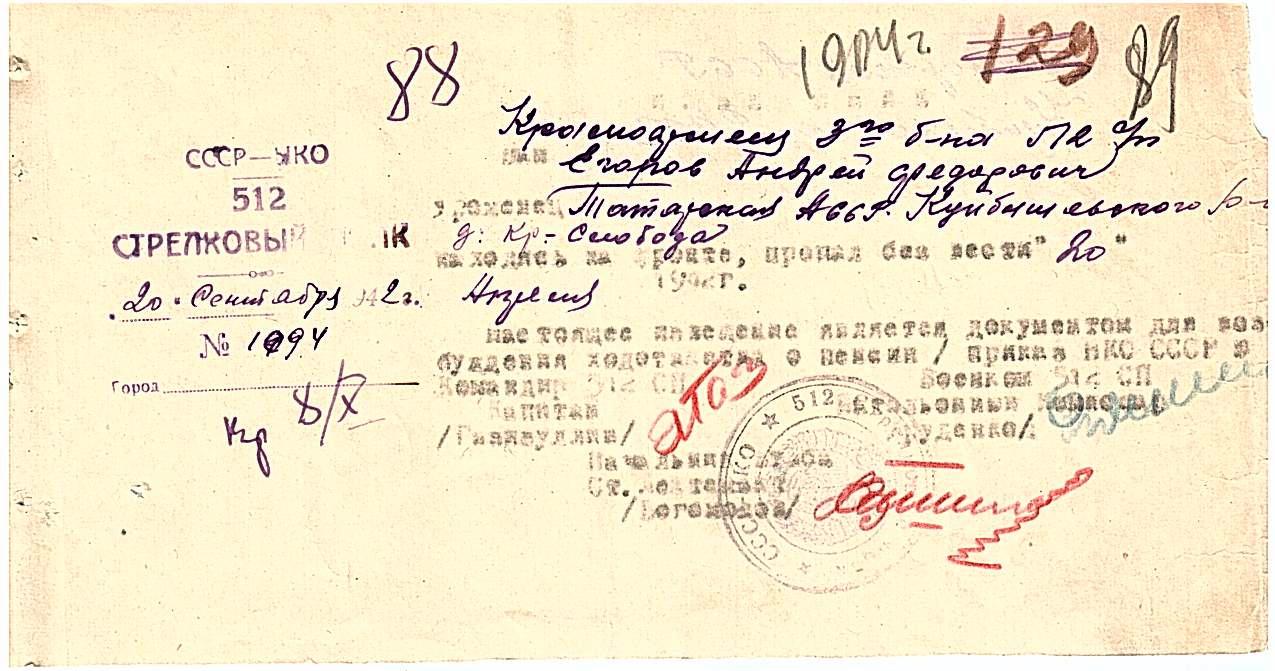 1904 г. 129 89
88
СССР—НКО
512
СТРЕЛКОВЫЙ
20 · Сентября 1942 г.
№ 1994
Город
Кр 8/X
Красноармеец 3го б-на
Егоров Андрей Федорович
уроженец Татарская АССР. Куйбышевского
д. Кр-Слобода
находясь на фронте, пропал без вести " 20 "
Апреля 1942г.
настоящее извещение является документом для воз-
буждения ходотайства о пенсии / приказ НКО СССР
Командир 512 СП Военком 512 СП
Капитан Батальонный Комиссар
/Гизатуллин/ /Руденко/
Начальник штаба
Ст. лейтенант
512
СССР НКО